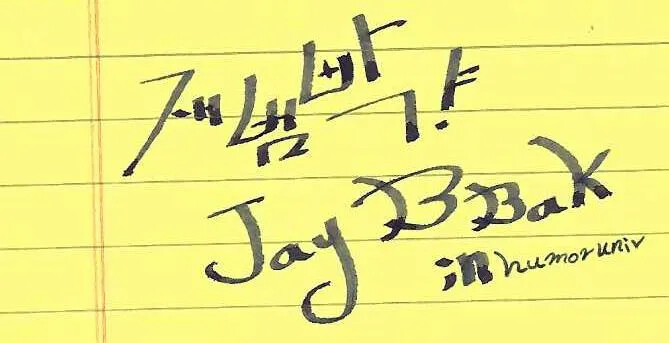 재범박
Jay B Bak
in humoruniv